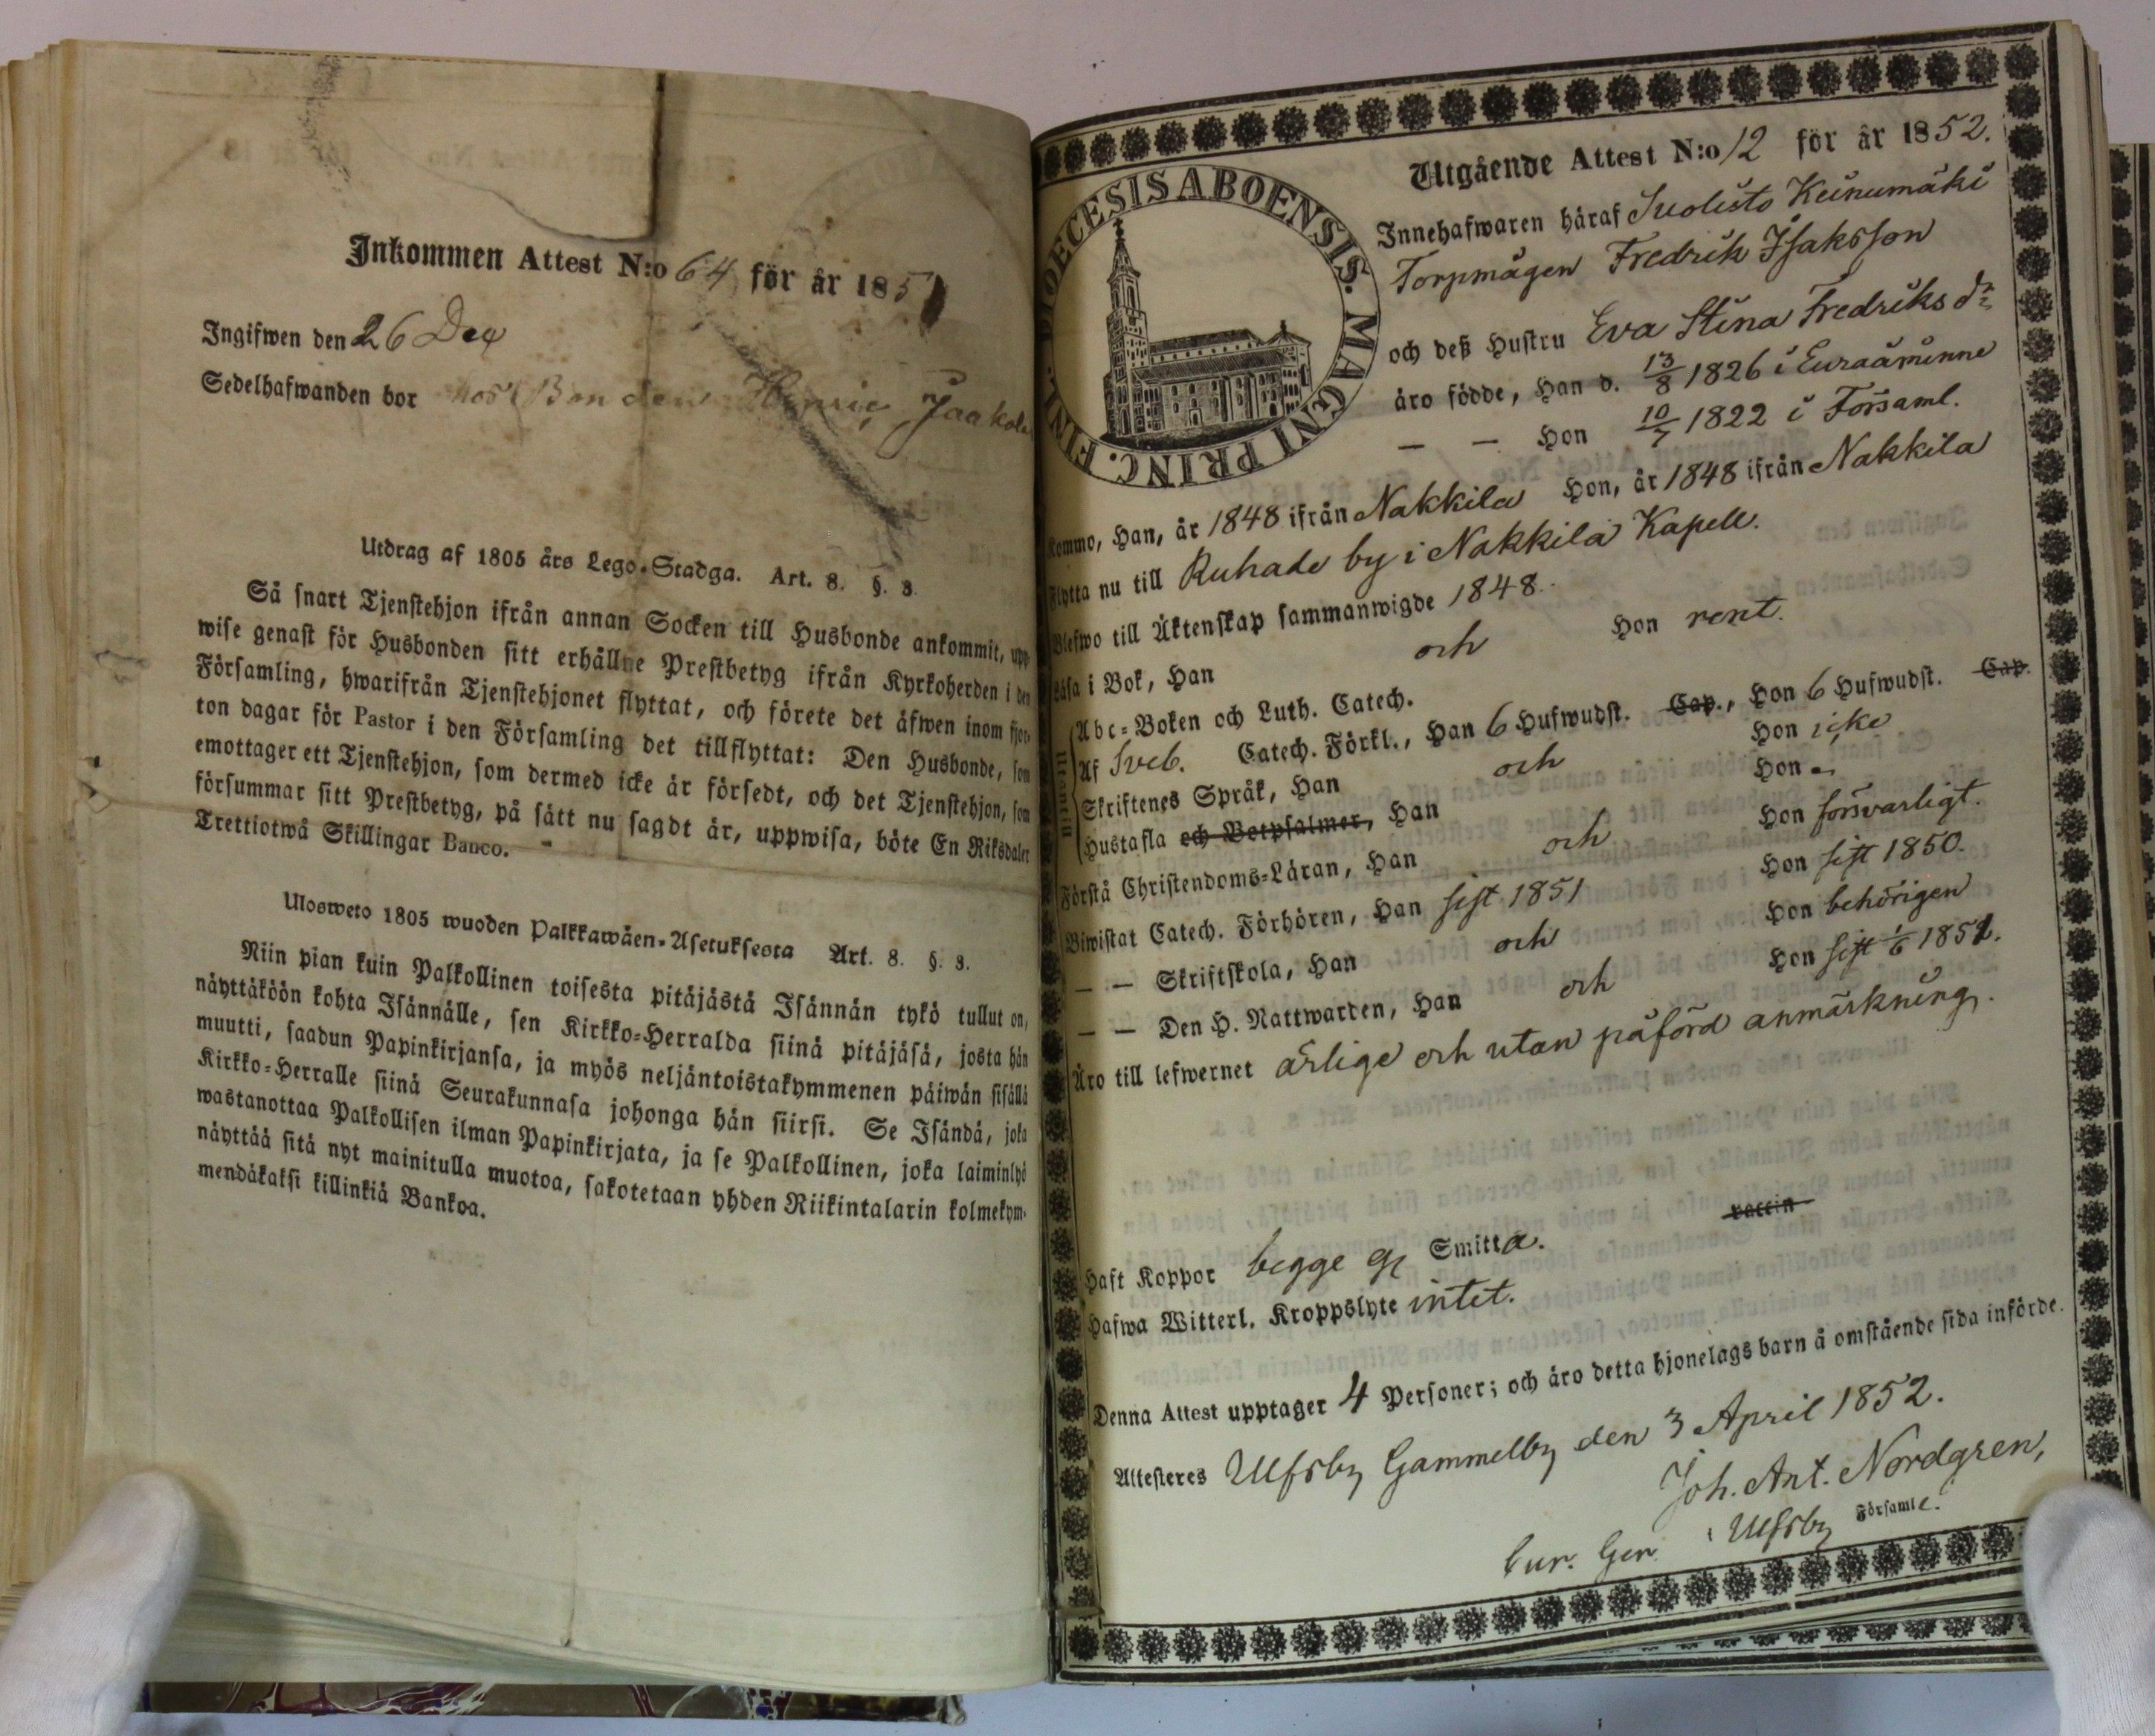 Inkommen Attest N:o 64 för år 1851
Ingifwen den 26 Dec
Sedelhafwanden bor hos Bonden Henric Jaakola
Utdrag af 1805 års Lego-Stadga. Art. 8. §. 3.
Så snart Tjenstehjon ifrån annan Socken till Husbonde ankommit, upp-
wise genast för Husbonden sitt erhållne Prestbetyg ifrån Kyrkoherden i den
Församling, hwarifrån Tjenstehjonet flyttat, och förete det äfwen inom fjor-
ton dagar för Pastor i den Församling det tillflyttat: Den Husbonde, som
emottager ett Tjenstehjon, som dermed icke är försedt, och det Tjenstehjon, som
försummar sitt Prestbetyg, på sätt nu sagdt är, uppwisa, böte En Riksdaler
Trettiotwå Skillingar Banco.
Ulosweto 1805 wuoden Palkkawäen-Asetuksesta Art. 8. §. 3.
Niin pian kuin Palkollinen toisesta pitäjästä Isännän tykö tullut on,
näyttäköön kohta Isännälle, sen Kirkko-Herralda siinä pitäjäsä, josta hän
muutti, saadun Papinkirjansa, ja myös neljäntoistakymmenen päiwän sisällä
Kirkko-Herralle siinä Seurakunnasa johonga hän siirsi. Se Isändä, joka
wastanottaa Palkollisen ilman Papinkirjata, ja se Palkollinen, joka laiminlyö
näyttää sitä nyt mainitulla muotoa, sakotetaan yhden Riikintalarin kolmekym-
mendäkaksi killinkiä Bankoa.
DIOECESIS ABOENSIS. MAGNI PRINC. FINL.
Utgående Attest N:o 12 för år 1852.
Innehafwaren häraf Suolisto Keinumäki
Torpmågen Fredrik Isaksson
och deß Hustru Eva Stina Fredriks dr
äro födde, Han d. 13/8 1826 i Euraåminne
— — Hon 10/7 1822 i Församl.
Kommo, Han, år 1848 ifrån Nakkila Hon, år 1848 ifrån Nakkila
Flytta nu till Ruhade by i Nakkila Kapell.
Blefwo till Äktenskap sammanwigde 1848.
Läsa i Bok, Han och Hon rent.
Utantill
Abc-Boken och Luth. Catech.
Af Sveb. Catech. Förkl., Han 6 Hufwudst. Cap., Hon 6 Hufwudst. Cap.
Skriftenes Språk, Han och Hon icke
Hustafla och Botpsalmer, Han Hon
Förstå Christendoms-Läran, Han och Hon försvarligt.
Biwistat Catech. Förhören, Han sist 1851 Hon sist 1850.
— — Skriftskola, Han och Hon behörigen
— — Den H. Nattwarden, Han och Hon sist 1/6 1851.
Äro till lefwernet ärlige och utan påförd anmärkning.
vaccin
Haft Koppor begge ej Smitta.
Hafwa Witterl. Kroppslyte intet.
Denna Attest upptager 4 Personer; och äro detta hjonelags barn å omstående sida införde.
Attesteres Ulfsby Gammelby den 3 April 1852.
Joh. Ant. Nordgren,
Cur. Ger. i Ulfsby Församl.